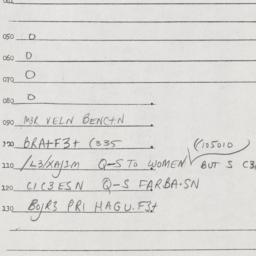 050 0
060 0
070 0
080 0
090 MZR VELN BENC+N
100 BRA+F3+ (335
(105010
110 /L3/XAJSM Q-S TO WOMEN BUT S C3
120 CIC3ESN Q-S FARBA.SN
130 BOJR3 PRI HAGU.F3+